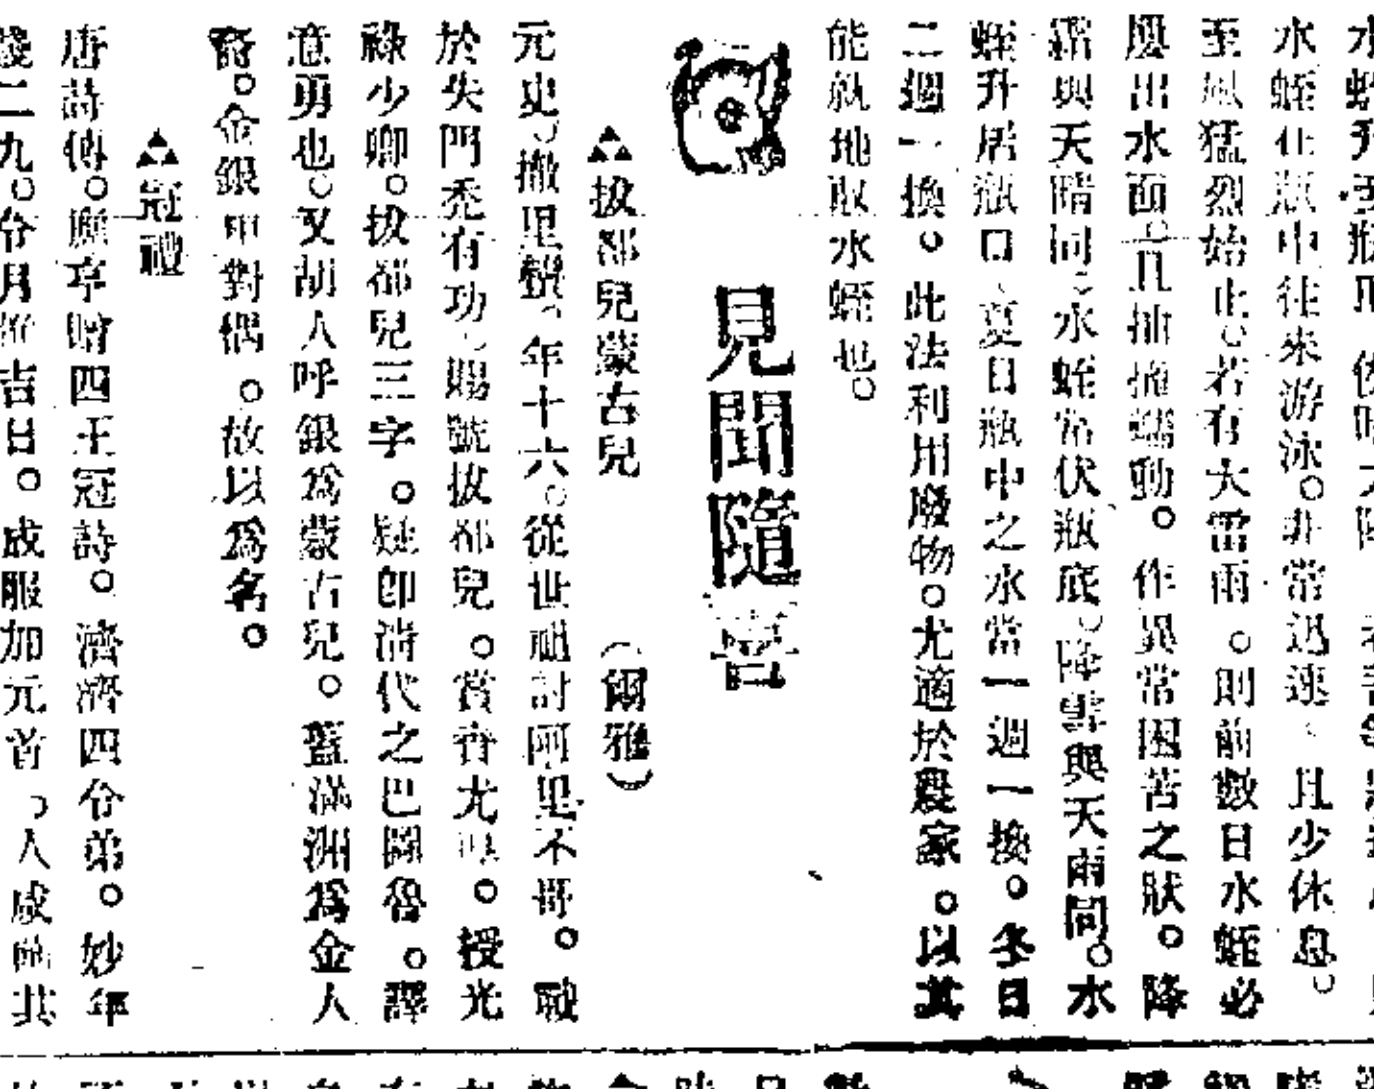 水蛭升至瓶
水蛭在瓶中往來游泳。非常迅速、且少休息。
至風猛烈始止。若有大雷雨。則前數日水蛭必
屢出水面。且抽搐蠕動。作異常困苦之狀。降
霜與天晴同。水蛭常伏瓶底。降雪與天雨同。水
蛭升居瓶口、夏日瓶中之水當一週一換。冬日
二週一換。此法利用廢物。尤適於農家。以其
能就地取水蛭也。
見聞隨
▲拔都兒蒙古兒 (爾雅)
元史、撒里蠻、年十六。從世祖討阿里不哥。戰
於失門禿有功、賜號拔都兒。賞賚尤。授光
祿少卿。拔都兒三字。疑卽淸代之巴圖魯。譯
意勇也。又胡人呼銀爲蒙古兒。蓋滿洲爲金人
裔。金銀對偶。故以爲名。
▲冠禮
唐詩傳。享四王冠詩。濟濟四令弟。妙年
二九。令月吉日。成服加元首。人成其